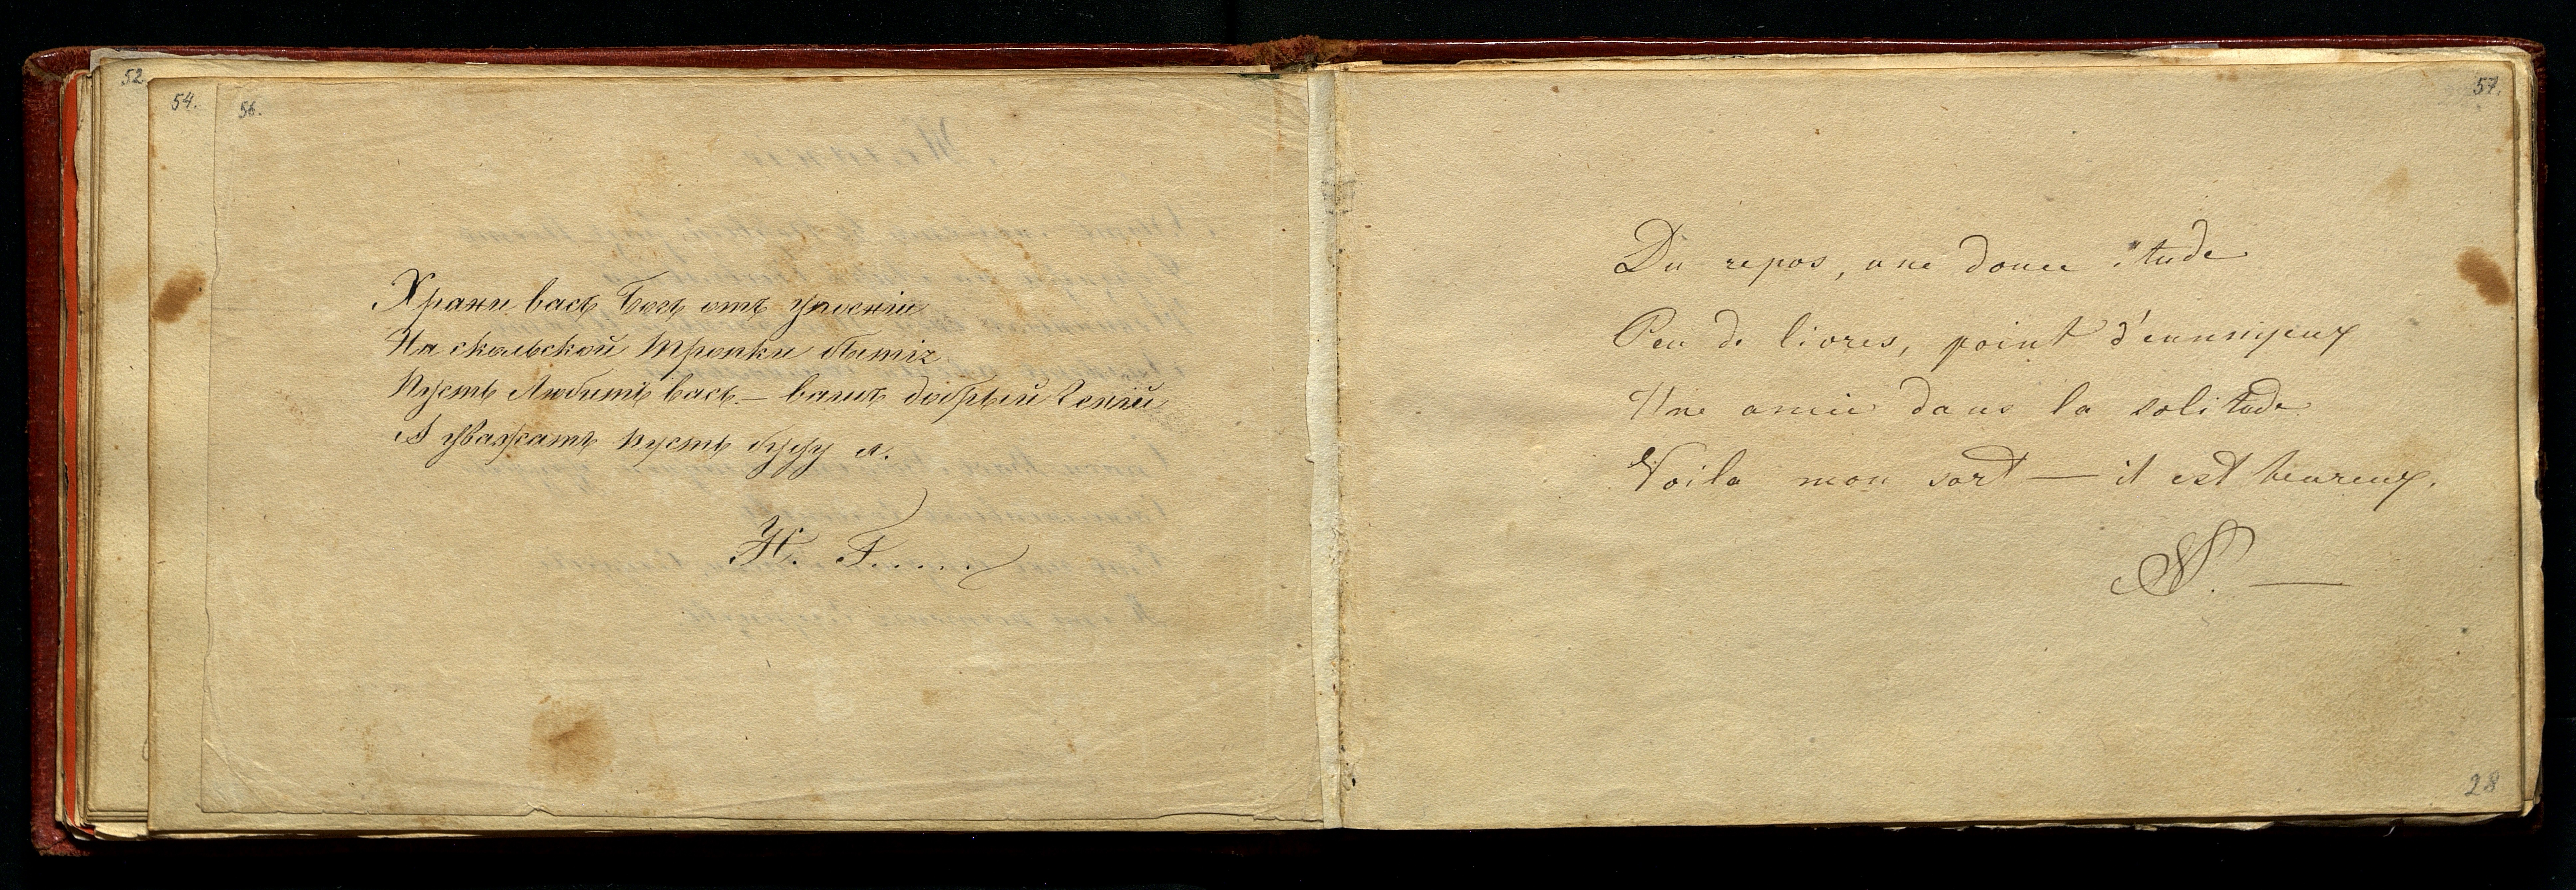 52.
54.
56.
Храни васъ Богъ отъ упоенiи
На скольской тропки бытiя
Пусть Любитъ васъ — вашъ добрый Генiй
А уважатъ пусть буду я.
Н. Г.....
57.
Du repos, une douce étude
Peu de livres, point d'ennuyeux
Une amie dans la solitude
Voila mon sort — il est heureux.
28